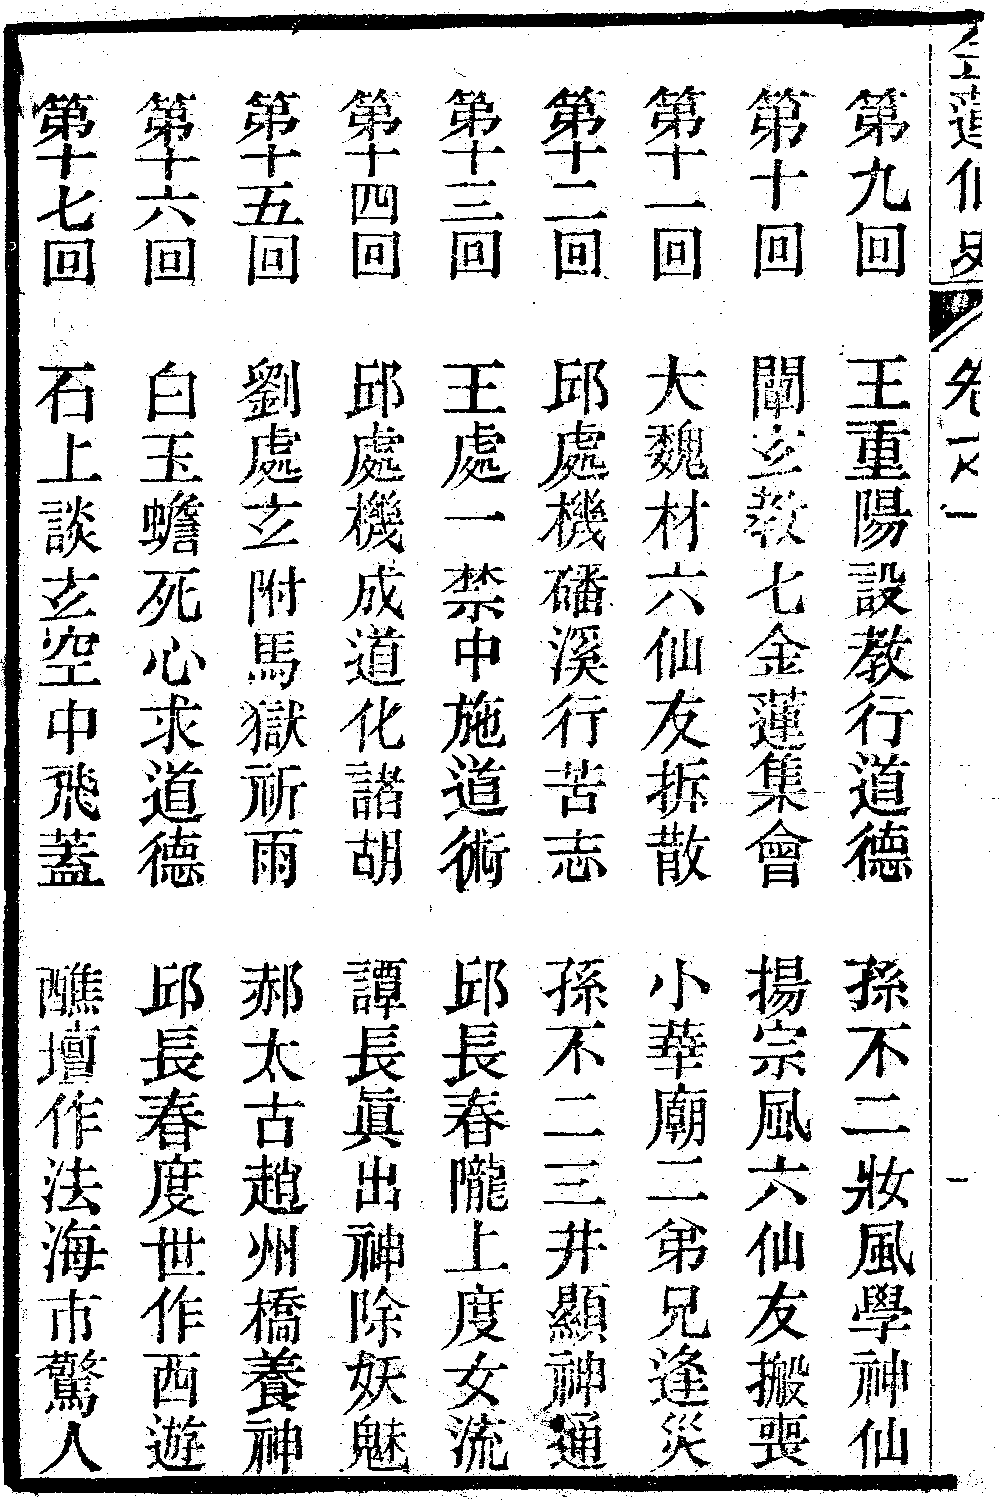 金蓮仙史
卷之一
一
第九回 王重陽設教行道德 孫不二妝風學神仙
第十回 闡玄教七金蓮集會 揚宗風六仙友搬喪
第十一回 大魏材六仙友拆散 小華廟二弟兄逢災
第十二回 邱處機磻溪行苦志 孫不二三井顯神通
第十三回 王處一禁中施道術 邱長春隴上度女流
第十四回 邱處機成道化諸胡 譚長眞出神除妖魅
第十五回 劉處玄附馬獄祈雨 郝太古趙州橋養神
第十六回 白玉蟾死心求道德 邱長春度世作西遊
第十七回 石上談玄空中飛蓋 醮壇作法海市驚人